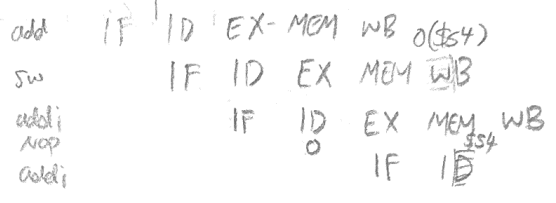 add IF ID EX MEM WB 0($s4)
sw IF ID EX MEM WB
addi IF ID EX MEM WB
NOP O $s4
addi IF ID